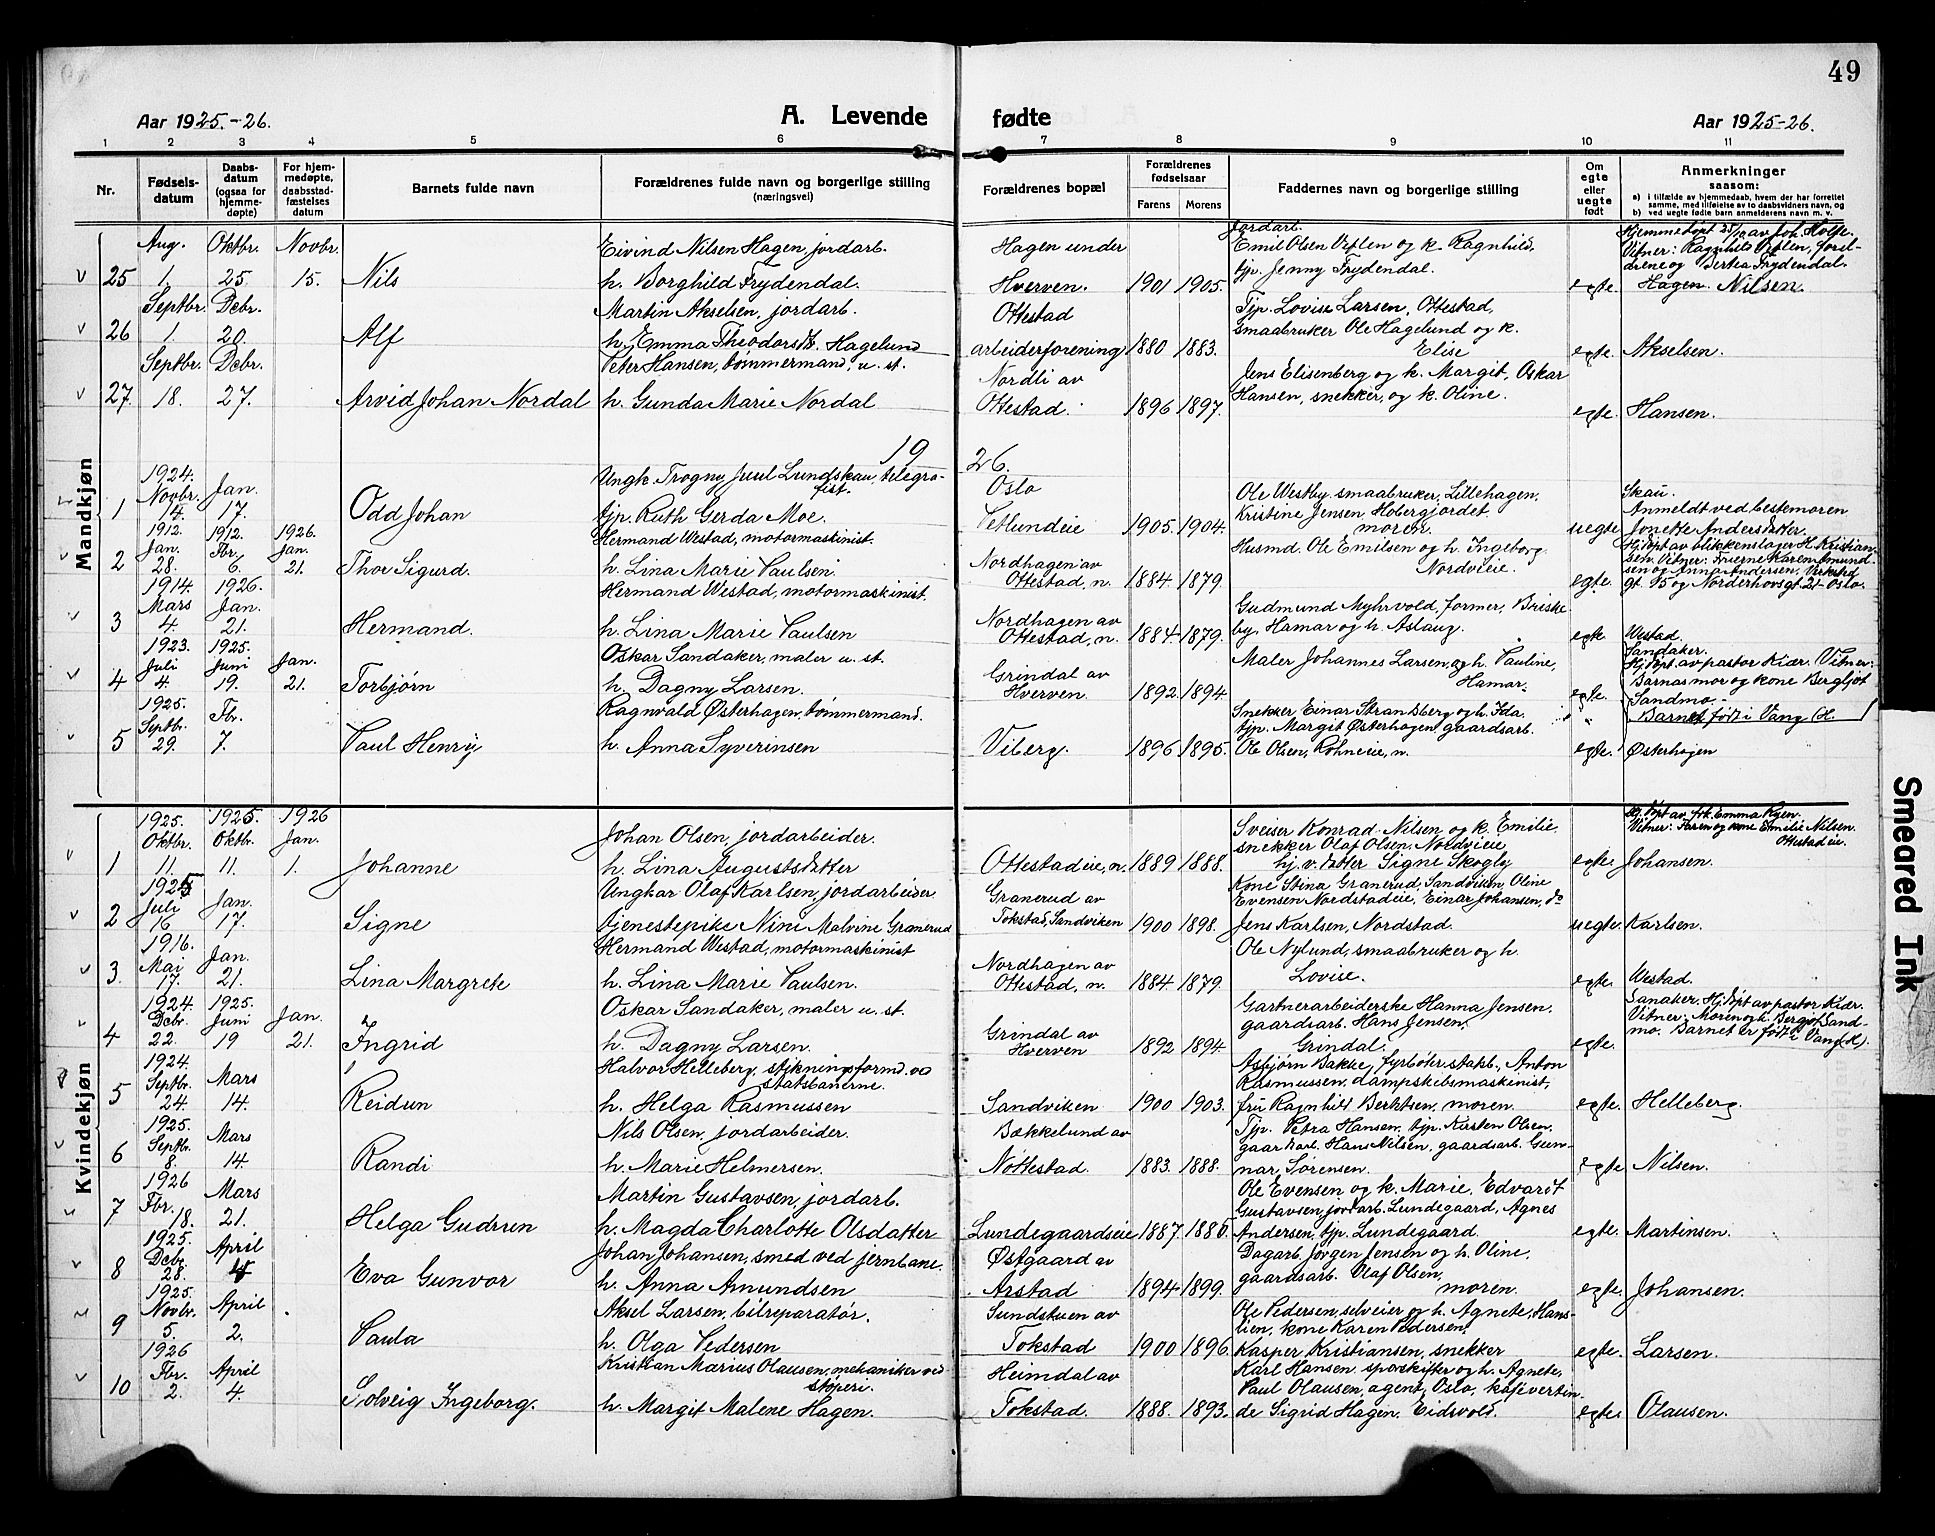 49
Aar 1925.-26.
A. Levende fødte
Aar 1925-26.
1 2 3 4 5 6 7 8 9 10 11
Nr.
Fødsels-
datum
Daabs-
datum
(ogsaa for
hjemme-
døpte)
For hjem-
medøpte,
daabsstad-
fæstelses
datum
Barnets fulde navn
Forældrenes fulde navn og borgerlige stilling
(næringsvei)
Forældrenes bopæl
Forældrenes
fødselsaar
Farens Morens
Faddernes navn og borgerlige stilling
Om
egte
eller
uegte
født
Anmerkninger
saasom:
a) i tilfælde av hjemmedaab, hvem der har forrettet
samme, med tilføielse av to daabsvidners navn, og
b) ved uegte fødte barn anmelderens navn m. v.
Mandkjøn
Aug. Oktbr. Novbr. Eivind Nilsen Hagen, jordarb. Hagen under Jordarb. Emil Olsen Veflen og k. Ragnhild, Hjemmedøpt 25/10 av Joh. Hoffe.
Vitner: Ragnhild Veflen, foræl-
drene og Bertea Frydendal.
25 1. 25. 15. Nils h. Borghild Frydendal. Hverven. 1901 1905. tjp. Jenny Frydendal. egte. Hagen Nilsen.
Septbr. Dcbr. Martin Akselsen, jordarb. Ottestad Tjp. Lovise Larsen, Ottestad,
smaabruker Ole Hagelund og k.
26 1. 20. Alf h. Emma Theodorsdtr. Hagelund arbeiderforening 1880 1883. Elise egte. Akselsen.
Septbr. Dcbr. Peter Hansen, tømmermand, u. st. Nordli av Jens Elisenberg og k. Margit, Oskar
27. 18. 27. Arvid Johan Nordal h. Gunda Marie Nordal Ottestad. 1896 1897. Hansen, snekker, og k. Oline. egte. Hansen.
19 26.
1924.
Novbr. Jan. Ungk. Trogny Juul Lundskau, telegra-
fist. Oslo Ole Westby, smaabruker, Lillehagen, Skau.
1 14. 17. Odd Johan tjp. Ruth Gerda Moe. Vetlundeie 1905. 1904. Kristine Jensen, Hobergjordet
moren. uegte Anmeldt ved bestemoren
Jonette Andersdatter.
1912. 1912. 1926.
Jan. Fbr. Jan. Hermand Westad, motormaskinist. Nordhagen av Husmd. Ole Emilsen og h. Ingeborg. Hj. døpt av blikkenslager H. Kristian-
2 28. 6. 21. Thor Sigurd. h. Lina Marie Paulsen Ottestad, n. 1884. 1879. Nordvieie. egte. sen. Vitner: Fruene Karen Amund-
sen og Anna Andersen, Verksted
gt. 15 og Norderhovsgt. 21, Oslo.
1914. 1926.
Mars Jan. Hermand Westad, motormaskinist. Nordhagen av Gudmund Myhrvold, former, Briske-
3 4. 21. Hermand. h. Lina Marie Paulsen Ottestad, n. 1884. 1879. by, Hamar og h. Aslaug. egte Westad.
1923. 1925.
Juli Juni Jan. Oskar Sandaker, maler u. st. Grindal av Maler Johannes Larsen, og h. Pauline, Sandaker.
4 4. 19. 21. Torbjørn h. Dagny Larsen. Hverven. 1892 1894 Hamar. egte. Hj. døpt. av pastor Kiær. Vitner:
Barnas mor og kone Bergljot
Sandmo.
Barnet født i Vang (H.
1925.
Septbr. Fbr. Ragnvald Østerhagen, tømmermand. Snekker Einar Strandberg og h. Ida,
tjp. Margit Østerhagen, gaardsarb.
5 29. 7. Paul Henry h. Anna Syverinsen Viberg. 1896 1895. Ole Olsen, Rohneeie, n. egte. Østerhagen
Kvindekjøn
1925. 1925. 1926
Oktbr. Oktbr. Jan. Johan Olsen, jordarbeider. Sveiser Konrad Nilsen og k. Emilie. Hj. døpt av frk. Emma Ryen.
snekker Olaf Olsen, Nordvieie Vitner: Faren og kone Emelie Nilsen.
Ottestadeie.
1 11. 11. 1. Johanne h. Lina Augustsdatter Ottestadeie, n. 1889 1888. hj. v. datter Signe Skogly egte Johansen.
1925
Juli Jan. Ungkar Olaf Karlsen, jordarbeider Granerud av Kone Stina Granerud, Sandviken, Oline
Evensen Nordstadeie, Einar Johansen, do
2 16 17. Signe tjenestepike Nini Malvine Granerud Tokstad, Sandviken 1900 1898. Jens Karlsen, Nordstad. uegte Karlsen.
1916.
Mai Jan. Hermand Westad, motormaskinist Nordhagen av Ole Nylund, smaabruker og h.
3 17. 21. Lina Margrete h. Lina Marie Paulsen. Ottestad, n. 1884 1879. Lovise. egte. Westad.
1924. 1925.
Dcbr. Juni Jan. Oskar Sandaker, maler u. st. Grindal av Gartnerarbeiderske Hanna Jensen, Sanaker. Hj. døpt av pastor Kiær.
gaardsarb. Hans Jensen, Vitner: Moren og k. Bergljot Sand-
4 22. 19 21. Ingrid h. Dagny Larsen. Hverven 1892 1894. Grindal. egte. mo. Barnet er født i Vang (H).
1924.
Septbr. Mars Halvor Helleberg, stikningsformd. va
statsbanerne. Asbjørn Bakke, fyrbøter, statsb., Anton
Rasmussen, dampskibsmaskinist,
5 24. 14. Reidun h. Helga Rasmussen Sandviken 1900 1903. fru Ragnhild Berntsen, moren. egte. Helleberg.
1925.
Septbr. Mars Nils Olsen, jordarbeider. Bækkelund av Tjp. Petra Hansen, tjp. Kirsten Olsen,
gaardarb. Hans Nilsen, gaardsarb. Gun-
6 8. 14. Randi h. Marie Helmersen. Nøttestad. 1883. 1888. nar Sørensen. egte Nilsen.
1926
Fbr. Mars Martin Gustavsen, jordarb. Ole Evensen og k. Marie, Edvardt
Gustavsen, jordarb. Lundegaard, Agnes
7 18. 21. Helga Gudrun h. Magda Charlotte Olsdatter Lundegaardseie 1887. 1886. Andersen, tjp. Lundegaard egte. Martinsen.
1925.
Dcbr. April Johan Johansen, smed ved jernbane. Østgaard av Dagarb. Jørgen Jensen og h. Oline,
gaardsarb. Olaf Olsen,
8 28. Eva Gunvor h. Anna Amundsen Arstad 1894 1899. moren. egte. Johansen.
1925.
Novbr. April Aksel Larsen, bilreparatør. Sundstuen av Ole Pedersen, selveier og h. Agnete, Hans-
lien, kone Karen Pedersen,
9 5. 2. Paula h. Olga Pedersen Tokstad 1900 1896. Kasper Kristiansen, snekker egte. Larsen.
1926
Fbr. April Kristian Marius Olausen, mekaniker ved
støperi. Heimdal av Karl Hansen sporskifter og h. Agnete,
Paul Olausen, agent, Oslo, kafevertin-
10 2. 4. Solveig Ingeborg. h. Margit Malene Hagen. Tokstad. 1888. 1893. de Sigrid Hagen, Eidsvold. egte Olausen.
Smeared Ink